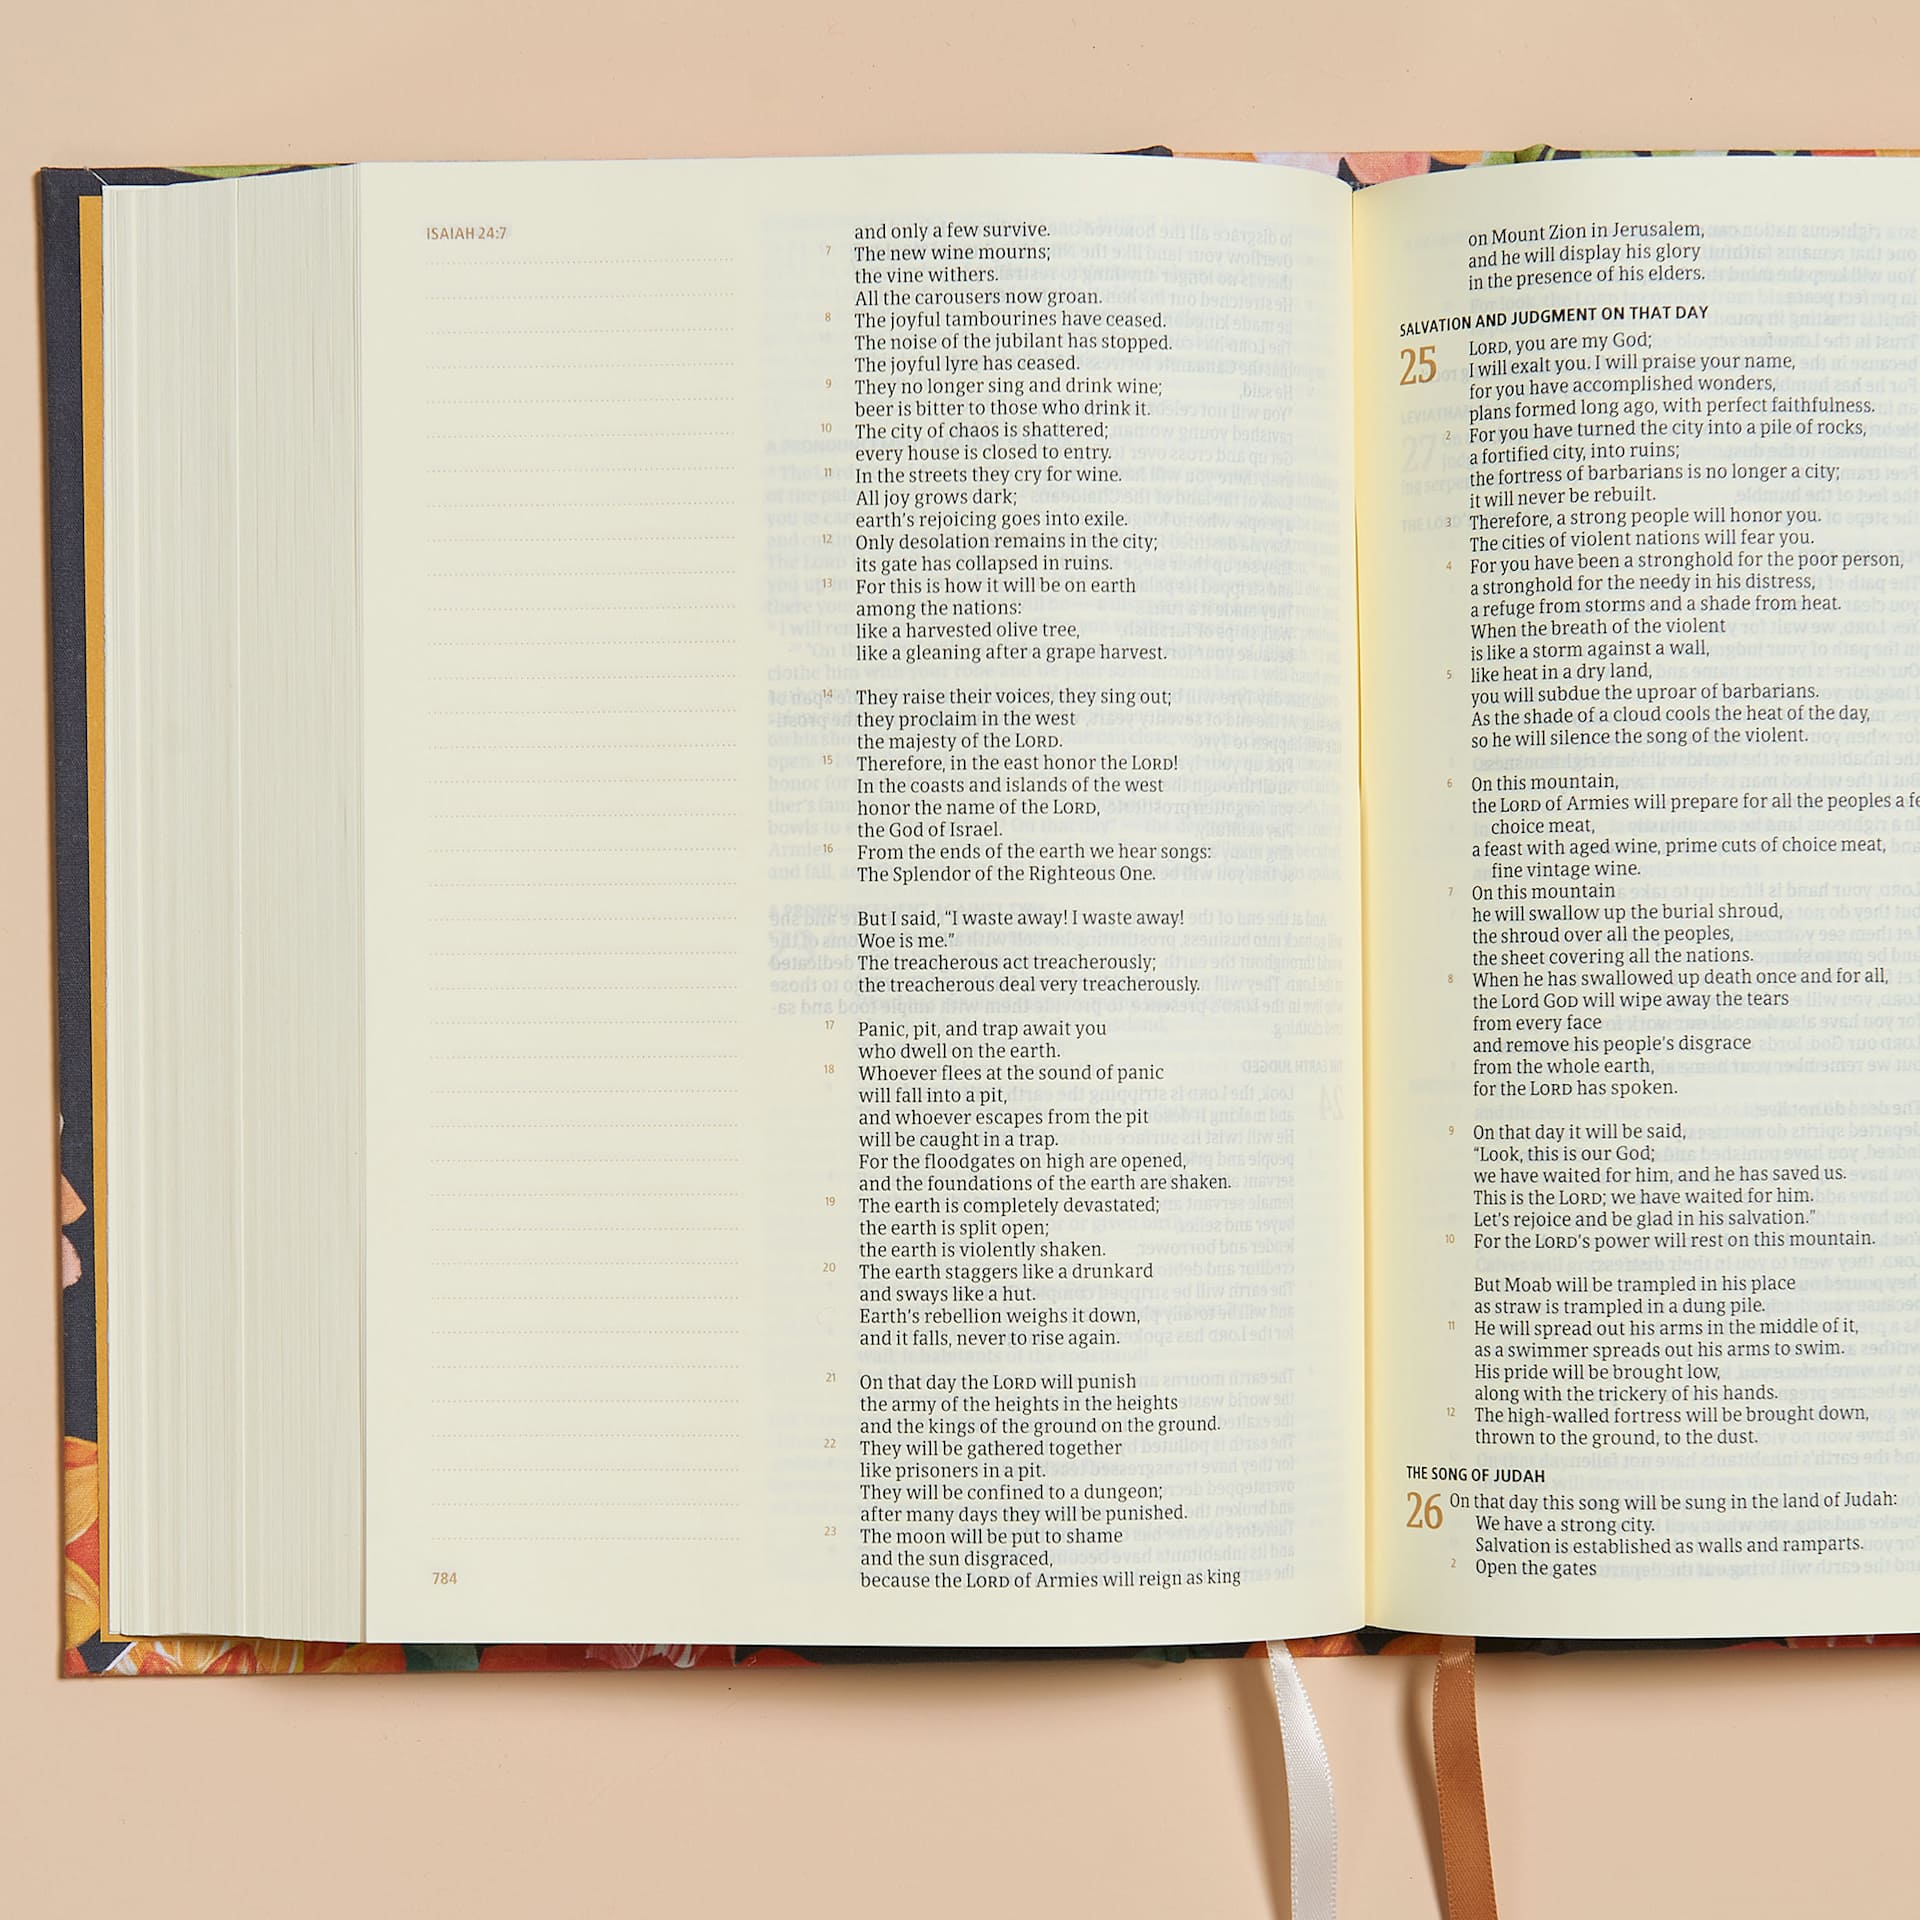 ISAIAH 24:7
and only a few survive.
7 The new wine mourns;
the vine withers.
All the carousers now groan.
8 The joyful tambourines have ceased.
The noise of the jubilant has stopped.
The joyful lyre has ceased.
9 They no longer sing and drink wine;
beer is bitter to those who drink it.
10 The city of chaos is shattered;
every house is closed to entry.
11 In the streets they cry for wine.
All joy grows dark;
earth’s rejoicing goes into exile.
12 Only desolation remains in the city;
its gate has collapsed in ruins.
13 For this is how it will be on earth
among the nations:
like a harvested olive tree,
like a gleaning after a grape harvest.
14 They raise their voices, they sing out;
they proclaim in the west
the majesty of the LORD.
15 Therefore, in the east honor the LORD!
In the coasts and islands of the west
honor the name of the LORD,
the God of Israel.
16 From the ends of the earth we hear songs:
The Splendor of the Righteous One.
But I said, “I waste away! I waste away!
Woe is me.”
The treacherous act treacherously;
the treacherous deal very treacherously.
17 Panic, pit, and trap await you
who dwell on the earth.
18 Whoever flees at the sound of panic
will fall into a pit,
and whoever escapes from the pit
will be caught in a trap.
For the floodgates on high are opened,
and the foundations of the earth are shaken.
19 The earth is completely devastated;
the earth is split open;
the earth is violently shaken.
20 The earth staggers like a drunkard
and sways like a hut.
Earth’s rebellion weighs it down,
and it falls, never to rise again.
21 On that day the LORD will punish
the army of the heights in the heights
and the kings of the ground on the ground.
22 They will be gathered together
like prisoners in a pit.
They will be confined to a dungeon;
after many days they will be punished.
23 The moon will be put to shame
and the sun disgraced,
because the LORD of Armies will reign as king
784
on Mount Zion in Jerusalem,
and he will display his glory
in the presence of his elders.
SALVATION AND JUDGMENT ON THAT DAY
25 LORD, you are my God;
I will exalt you. I will praise your name,
for you have accomplished wonders,
plans formed long ago, with perfect faithfulness.
2 For you have turned the city into a pile of rocks,
a fortified city, into ruins;
the fortress of barbarians is no longer a city;
it will never be rebuilt.
3 Therefore, a strong people will honor you.
The cities of violent nations will fear you.
4 For you have been a stronghold for the poor person,
a stronghold for the needy in his distress,
a refuge from storms and a shade from heat.
When the breath of the violent
is like a storm against a wall,
5 like heat in a dry land,
you will subdue the uproar of barbarians.
As the shade of a cloud cools the heat of the day,
so he will silence the song of the violent.
6 On this mountain,
the LORD of Armies will prepare for all the peoples a
choice meat,
a feast with aged wine, prime cuts of choice meat,
fine vintage wine.
7 On this mountain
he will swallow up the burial shroud,
the shroud over all the peoples,
the sheet covering all the nations.
8 When he has swallowed up death once and for all,
the Lord GOD will wipe away the tears
from every face
and remove his people’s disgrace
from the whole earth,
for the LORD has spoken.
9 On that day it will be said,
“Look, this is our God;
we have waited for him, and he has saved us.
This is the LORD; we have waited for him.
Let’s rejoice and be glad in his salvation.”
10 For the LORD’s power will rest on this mountain.
But Moab will be trampled in his place
as straw is trampled in a dung pile.
11 He will spread out his arms in the middle of it,
as a swimmer spreads out his arms to swim.
His pride will be brought low,
along with the trickery of his hands.
12 The high-walled fortress will be brought down,
thrown to the ground, to the dust.
THE SONG OF JUDAH
26 On that day this song will be sung in the land of Judah:
We have a strong city.
Salvation is established as walls and ramparts.
2 Open the gates